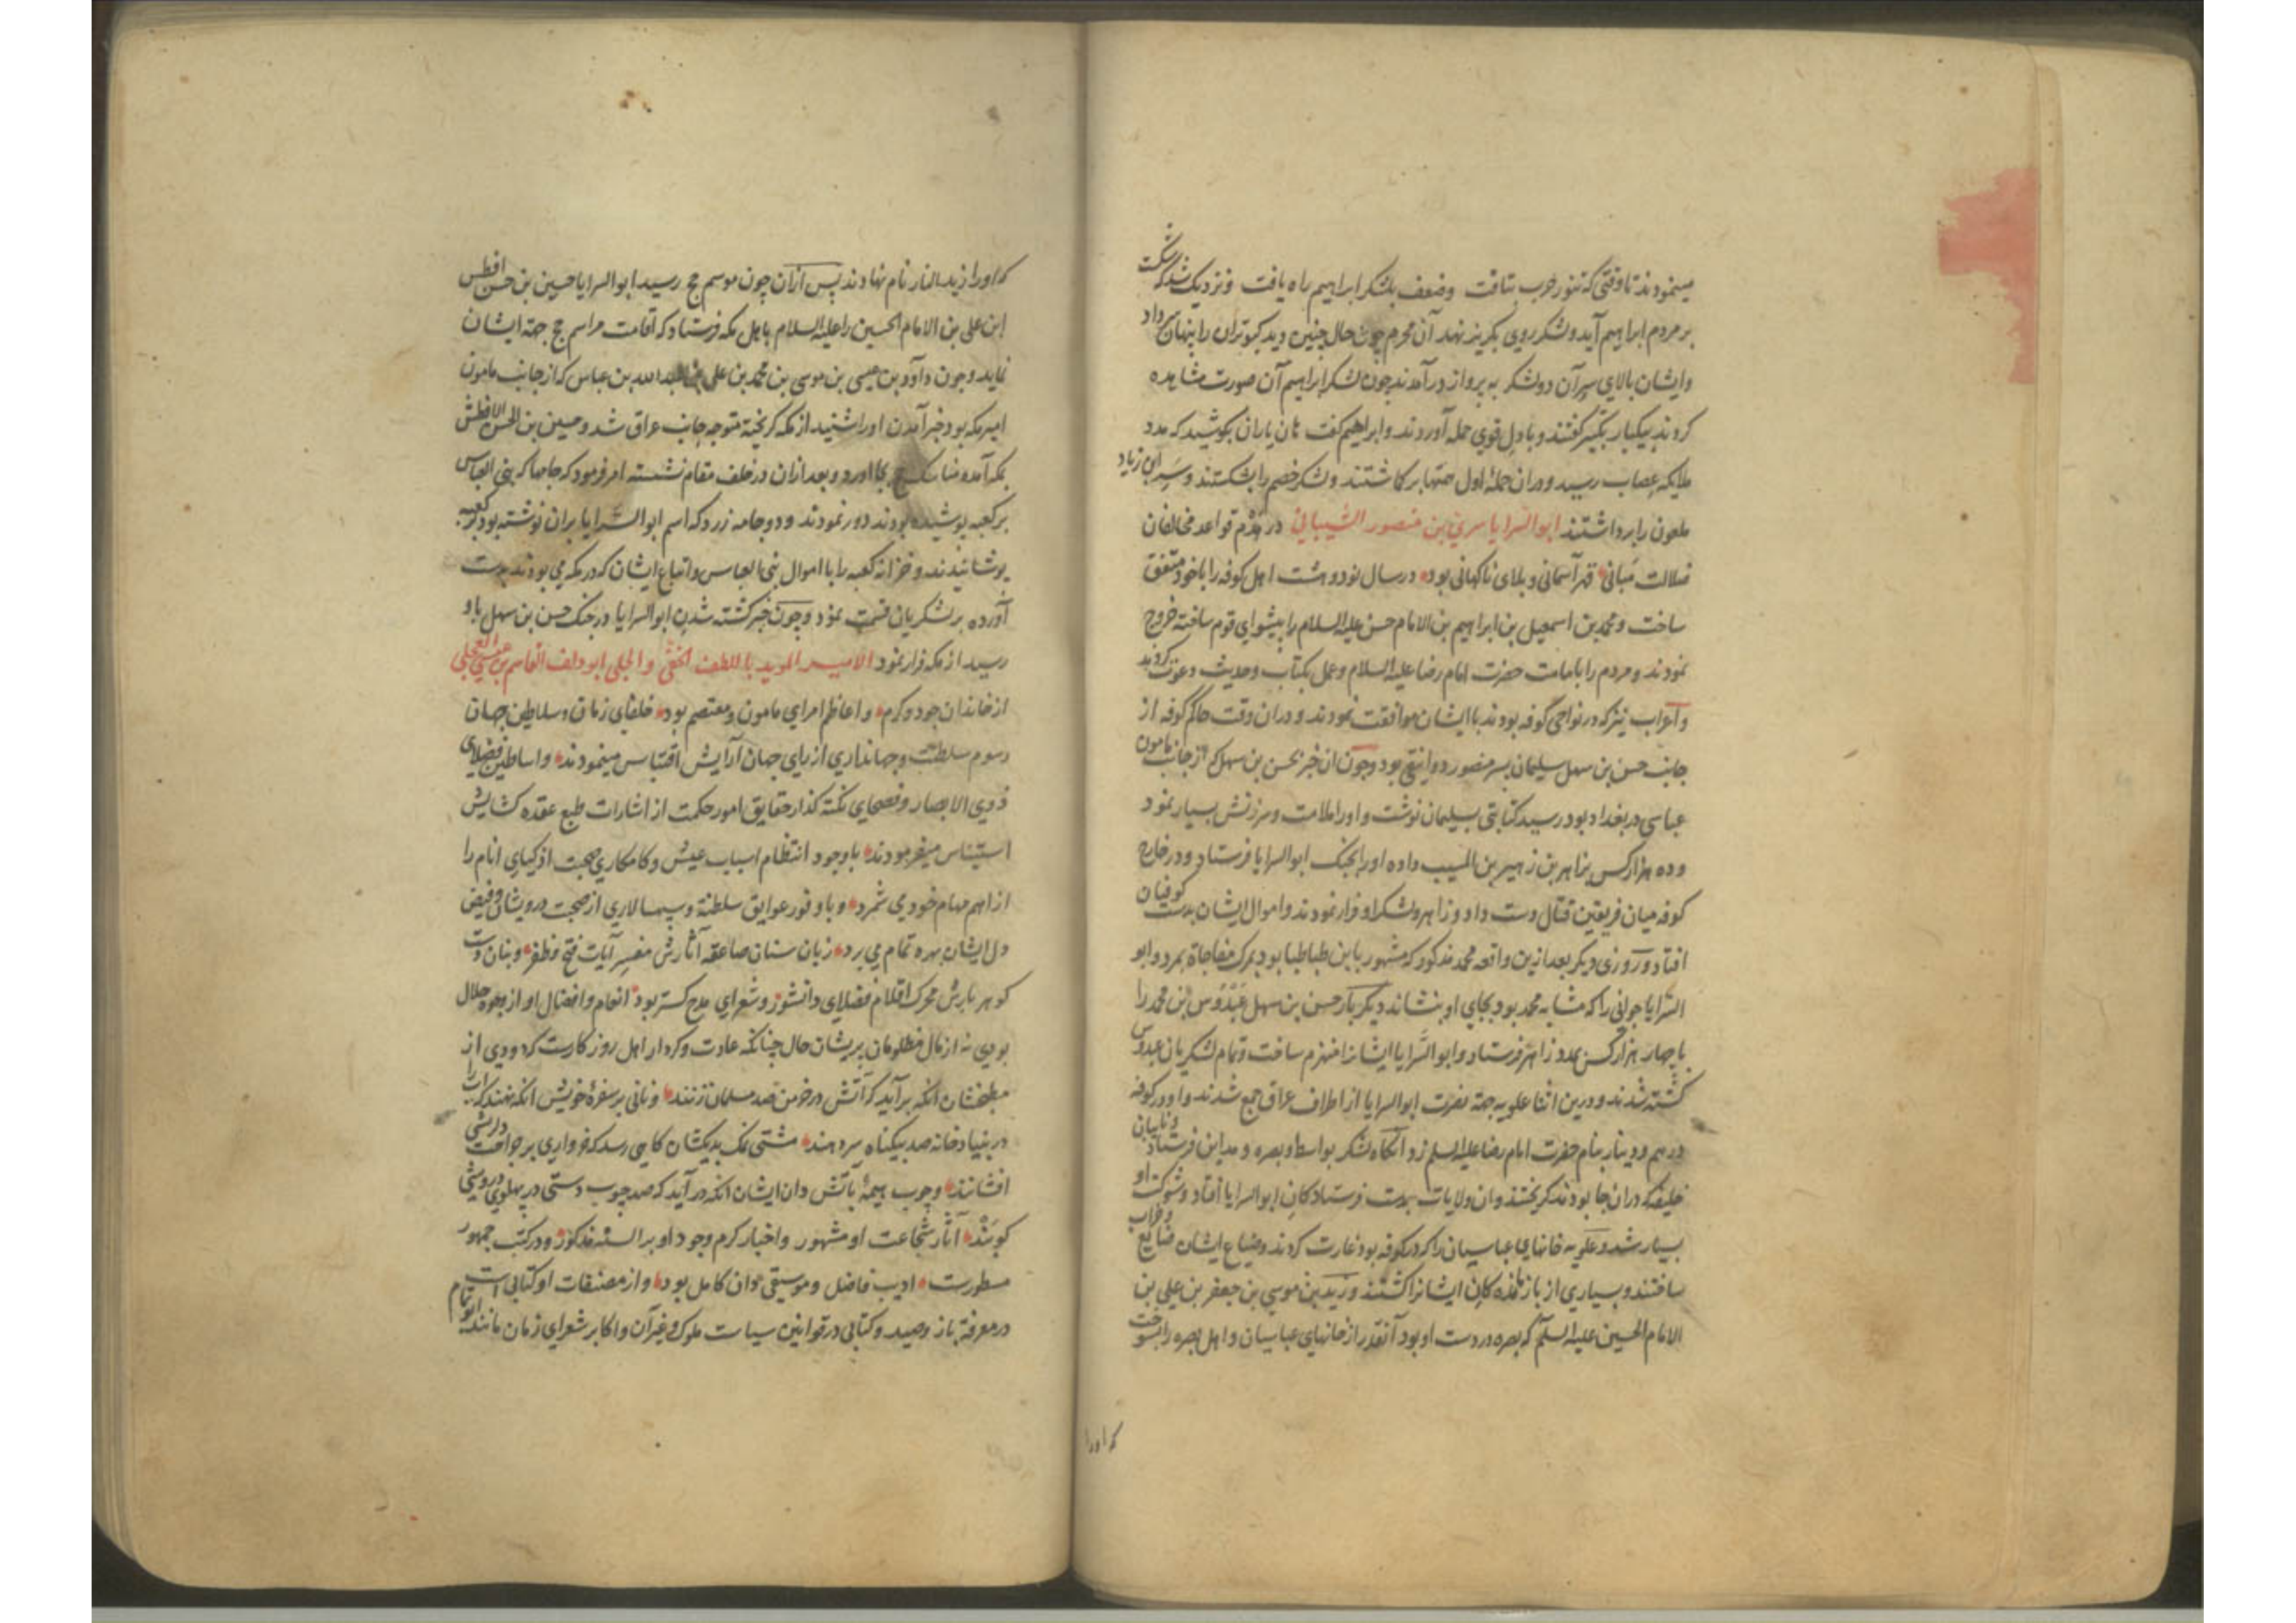 مینمودند تا وقتی که تنور حرب بتافت وضعف بلشکر ابراهیم راه یافت ونزدیک شد که شکست
بر مردم ابراهیم آید ولشکر روی بگریز نهد آن محرم چون حال چنین دید کبوتران را پنهان سر داد
وایشان بالای سر آن دو لشکر به پرواز در آمدند چون لشکر ابراهیم آن صورت مشاهده
کردند بیکبار تکبیر گفتند وبا دل قوی حمله آوردند وابراهیم گفت هان یاران بکوشید که مدد
ملایکه عصاب رسید ودران حملهٔ اول همتها بر کاشتند ولشکر خصم را بشکستند وسر ابن زیاد
ملعون را برداشتند ابو السرایا سری بن منصور الشیبانی در هدم قواعد مخالفان
ضلالت مبانی قهر آسمانی وبلای ناکهانی بود در سال نود وهشت اهل کوفه را با خود متفق
ساخت ومحمد بن اسمعیل بن ابراهیم بن الامام حسن علیه السلام را پیشوای قوم ساخته خروج
نمودند ومردم را بامامت حضرت امام رضا علیه السلام وعمل بکتاب وحدیث دعوت کردند
واعراب نیز که در نواحی کوفه بودند با ایشان موافقت نمودند ودران وقت حاکم کوفه از
جانب حسن بن سهل سلیمان پسر منصور دوانیقی بود وچون ان خبر بحسن بن سهل که از جانب مامون
عباسی در بغداد بود رسید کتابتی بسلیمان نوشت واورا ملامت وسرزنش بسیار نمود
وده هزار کس بزاهر بن زهیر بن المسیب داده اورا بجنک ابو السرایا فرستاد ودر خارج
کوفه میان فریقین قتال دست داد وزاهر ولشکر او فرار نمودند واموال ایشان بدست کوفیان
افتاد وروزی دیکر بعد ازین واقعه محمد مذکور که مشهور بابن طباطبا بود بمرک مفاجاة بمرد وابو
السرایا جوانی را که مشابه محمد بود بجای او بنشاند دیکر بار حسن بن سهل عبدوس بن محمد را
با چهار هزار کس بمدد زاهر فرستاد وابو السرایا ایشانرا منهزم ساخت وتمام لشکریان عبدوس
کشته شدند ودرین اثنا علویه جهة نصرت ابو السرایا از اطراف عراق جمع شدند واو در کوفه
درهم ودینار بنام حضرت امام رضا علیه السلم زد آنکاه لشکر بواسط وبصره ومداین فرستاد ونایبان
خلیفه که دران جا بودند کریختند وان ولایات بدست فرستادکان ابو السرایا افتاد وشوکت او
بسیار شد وعلویه خانهای عباسیان را که در کوفه بود غارت کردند وضیاع ایشان ضایع وخراب
ساختند وبسیاری از باز مانده کان ایشانرا کشتند وزید بن موسی بن جعفر بن علی بن
الامام الحسین علیه السلم که بصره در دست او بود آنقدر از خانهای عباسیان واهل بصره را بسوخت
که اورا
که اورا زید النار نام نهادند پس ازان چون موسم حج رسید ابو السرایا حسین بن حسن افطس
ابن علی بن الامام الحسین را علیه السلام باهل مکه فرستاد که اقامت مراسم حج جهة ایشان
نماید وچون داوود بن عیسی بن موسی بن محمد بن علی بن عبد الله بن عباس که از جانب مامون
امیر مکه بود خبر آمدن اورا شنید از مکه کریخته متوجه جانب عراق شد وحسین بن الحسن الافطس
بمکه آمده مناسک حج بجا اورد وبعد ازان در خلف مقام نشسته امر فرمود که جامها که بنی العباس
بر کعبه پوشیده بودند دور نمودند ودو جامه زرد که اسم ابو السرایا بران نوشته بود بر کعبه
پوشانیدند وخزانه کعبه را با اموال بنی العباس واتباع ایشان که در مکه می بودند بدست
آورده بر لشکریان قسمت نمود وچون خبر کشته شدن ابو السرایا در جنک حسن بن سهل باو
رسید از مکه فرار نمود الامیر الموید باللطف الخفی والجلی ابو دلف القاسم بن عیسی العجلی
از خاندان جود وکرم واعاظم امرای مامون ومعتصم بود خلفای زمان وسلاطین جهان
رسوم سلطنت وجهانداری از رای جهان آرایش اقتباس مینمودند واساطین فضلای
ذوی الابصار وفصحای نکته کذار حقایق امور حکمت از اشارات طبع عقده کشایش
استیناس میفرمودند با وجود انتظام اسباب عیش وکامکاری صحبت اذکیای انام را
از اهم مهام خود می شمرد وبا وفور عوایق سلطنة وسپهسالاری از صحبت درویشان وفیض
دل ایشان بهره تمام می برد زبان سنان صاعقه آثارش مفسر آیات فتح وظفر وبنان دست
کوهر بارش محرک اقلام فضلای دانشور وشعرای مدح کستر بود انعام وافضال او از وجوه حلال
بودی نه از مال مظلومان پریشان حال چنانکه عادت وکردار اهل روز کارست که دودی از
مطبخشان انکه بر آید که آتش در خرمن صد مسلمان زنند ونانی بر سفرهٔ خویش انکه نهند که آب را
در بنیاد خانه صد بیکناه سر دهند مشتی نمک بدیکشان کاهی رسد که خرواری بر جراحت درویشی
افشانند وچوب هیمهٔ باتش دان ایشان انکه در آید که صد چوب دستی در پهلوی درویشی
کوبند آثار شجاعت او مشهور واخبار کرم وجود او بر السنه مذکور ودر کتب جمهور
مسطورست ادیب فاضل وموسیقی دان کامل بود واز مصنفات او کتابی است
در معرفة باز وصید وکتابی در قوانین سیاست ملوک وغیر آن واکابر شعرای زمان مانند ابو تمام